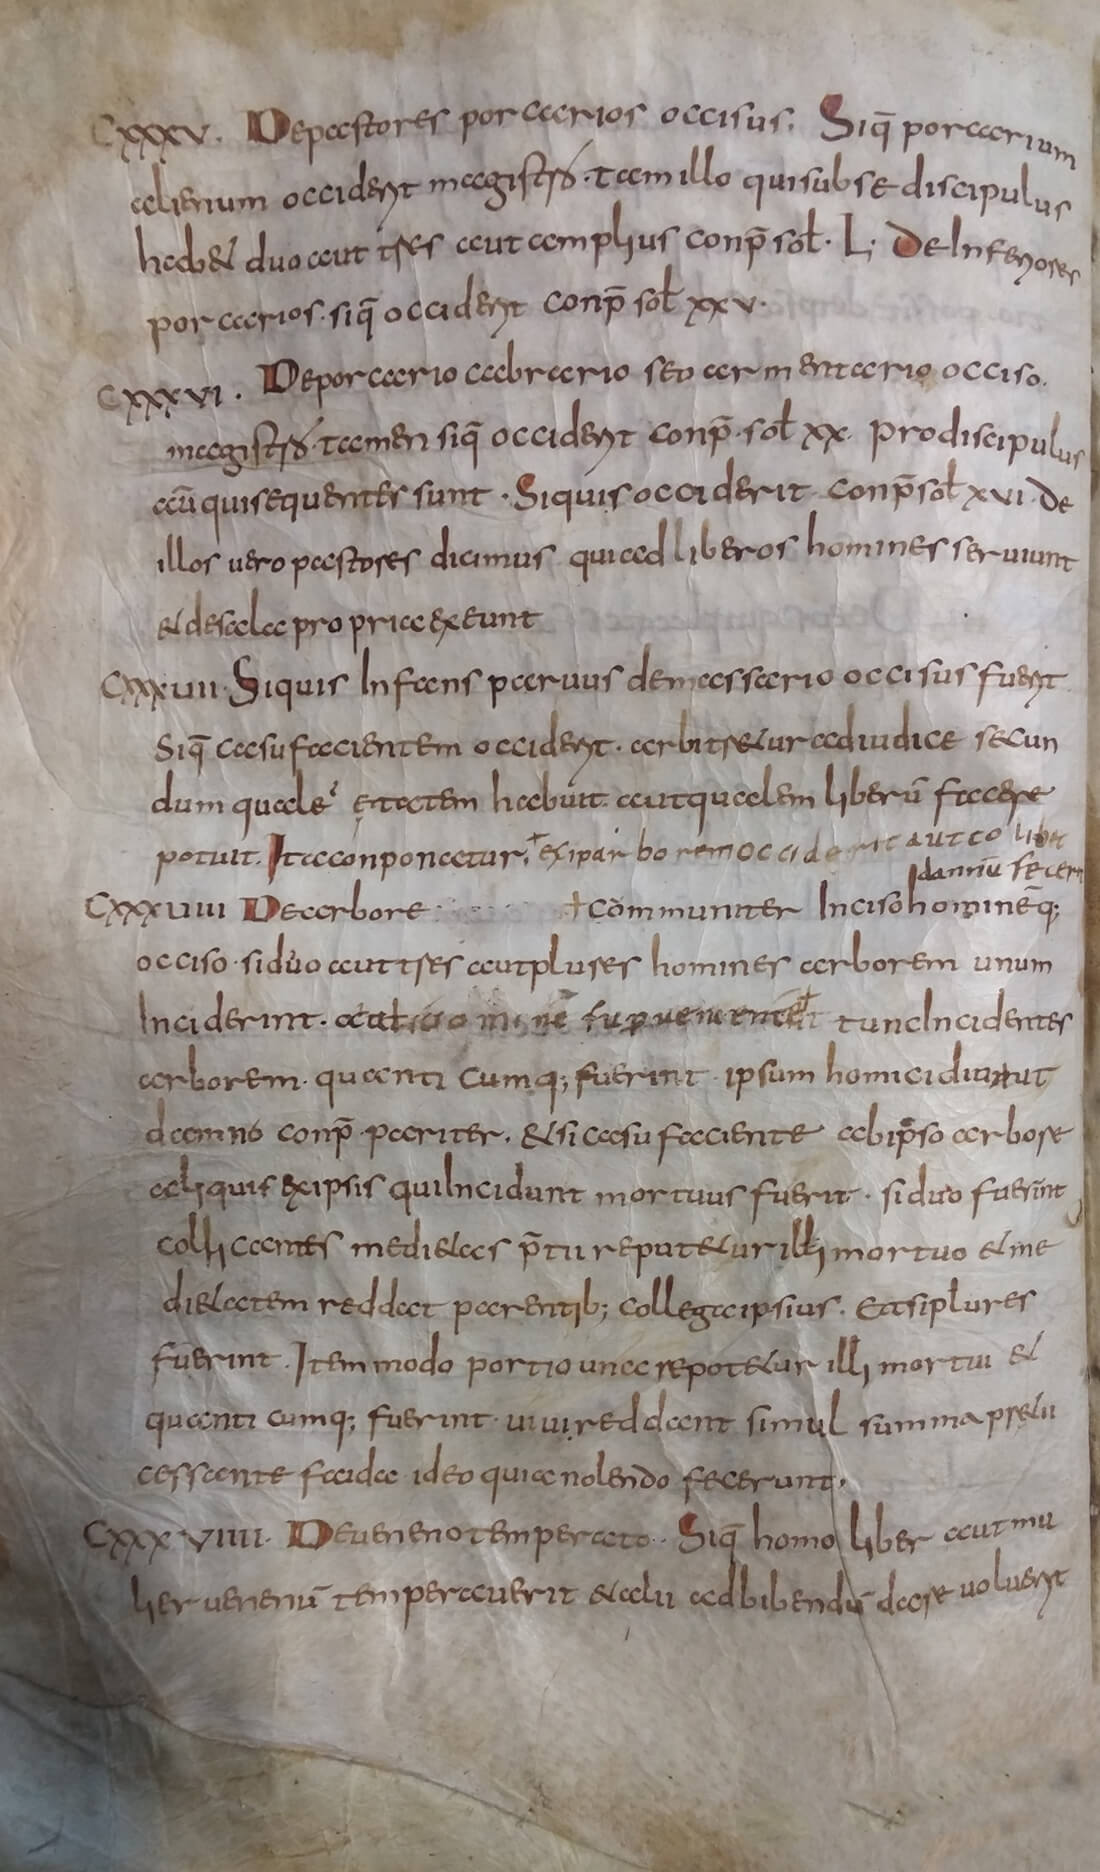 CXXXV. Depastores porcarios occisus. Siq̄ porcarium
alienum occiderit magistrū. tam illo qui sub se discipulus
habet duo aut tres aut amplius conp̄ sol̄. L. De Inferiores
porcarios. siq̄ occiderit conp̄ sol̄ xxv.
CXXXVI. Deporcario cabrario seo armentario occiso.
magistrū. tamen siq̄ occiderit conp̄. sol̄ xx. prodiscipulus
aū qui sequentes sunt. Siquis occiderit conp̄ sol̄ xvi. De
illos vero pastores dicimus qui ad liberos homines serviunt
et de sala propria exeunt
CXXXVII. Siquis Infans parvus de massario occisus fuerit
Siq̄ casu facientem occiderit. arbitretur ad iudice secun
dum quale etatem habuit. aut qualem liberū facere
potuit. Ita conponatur. exipar borem occiderit aut eo libet
damnū fecerit
CXXXVIII Dearbore communiter Inciso hominēq;
occiso. si duo aut tres aut plures homines arborem unum
Inciderint. tunc Incidentes
arborem. quanti cumq; fuerint ipsum homicidium aut
damno conp̄ pariter. et si casu faciente ab ipso arbore
aliquis ex ipsis qui Incidunt mortuus fuerit. si duo fuerint
colligantes medietas p̄tii reputetur illi mortuo et me
dietatem reddat parentib; collega ipsius. Et si plures
fuerint. Item modo portio una repotetur illi mortui et
quanti cumq; fuerint. vivi reddant simul summa pretii
cessante faida ideo quia nolendo fecerunt.
CXXXVIIII. Deveneno temperato. Siq̄ homo liber aut mu
lier venenū temperaverit et alii ad bibendū dare voluerit